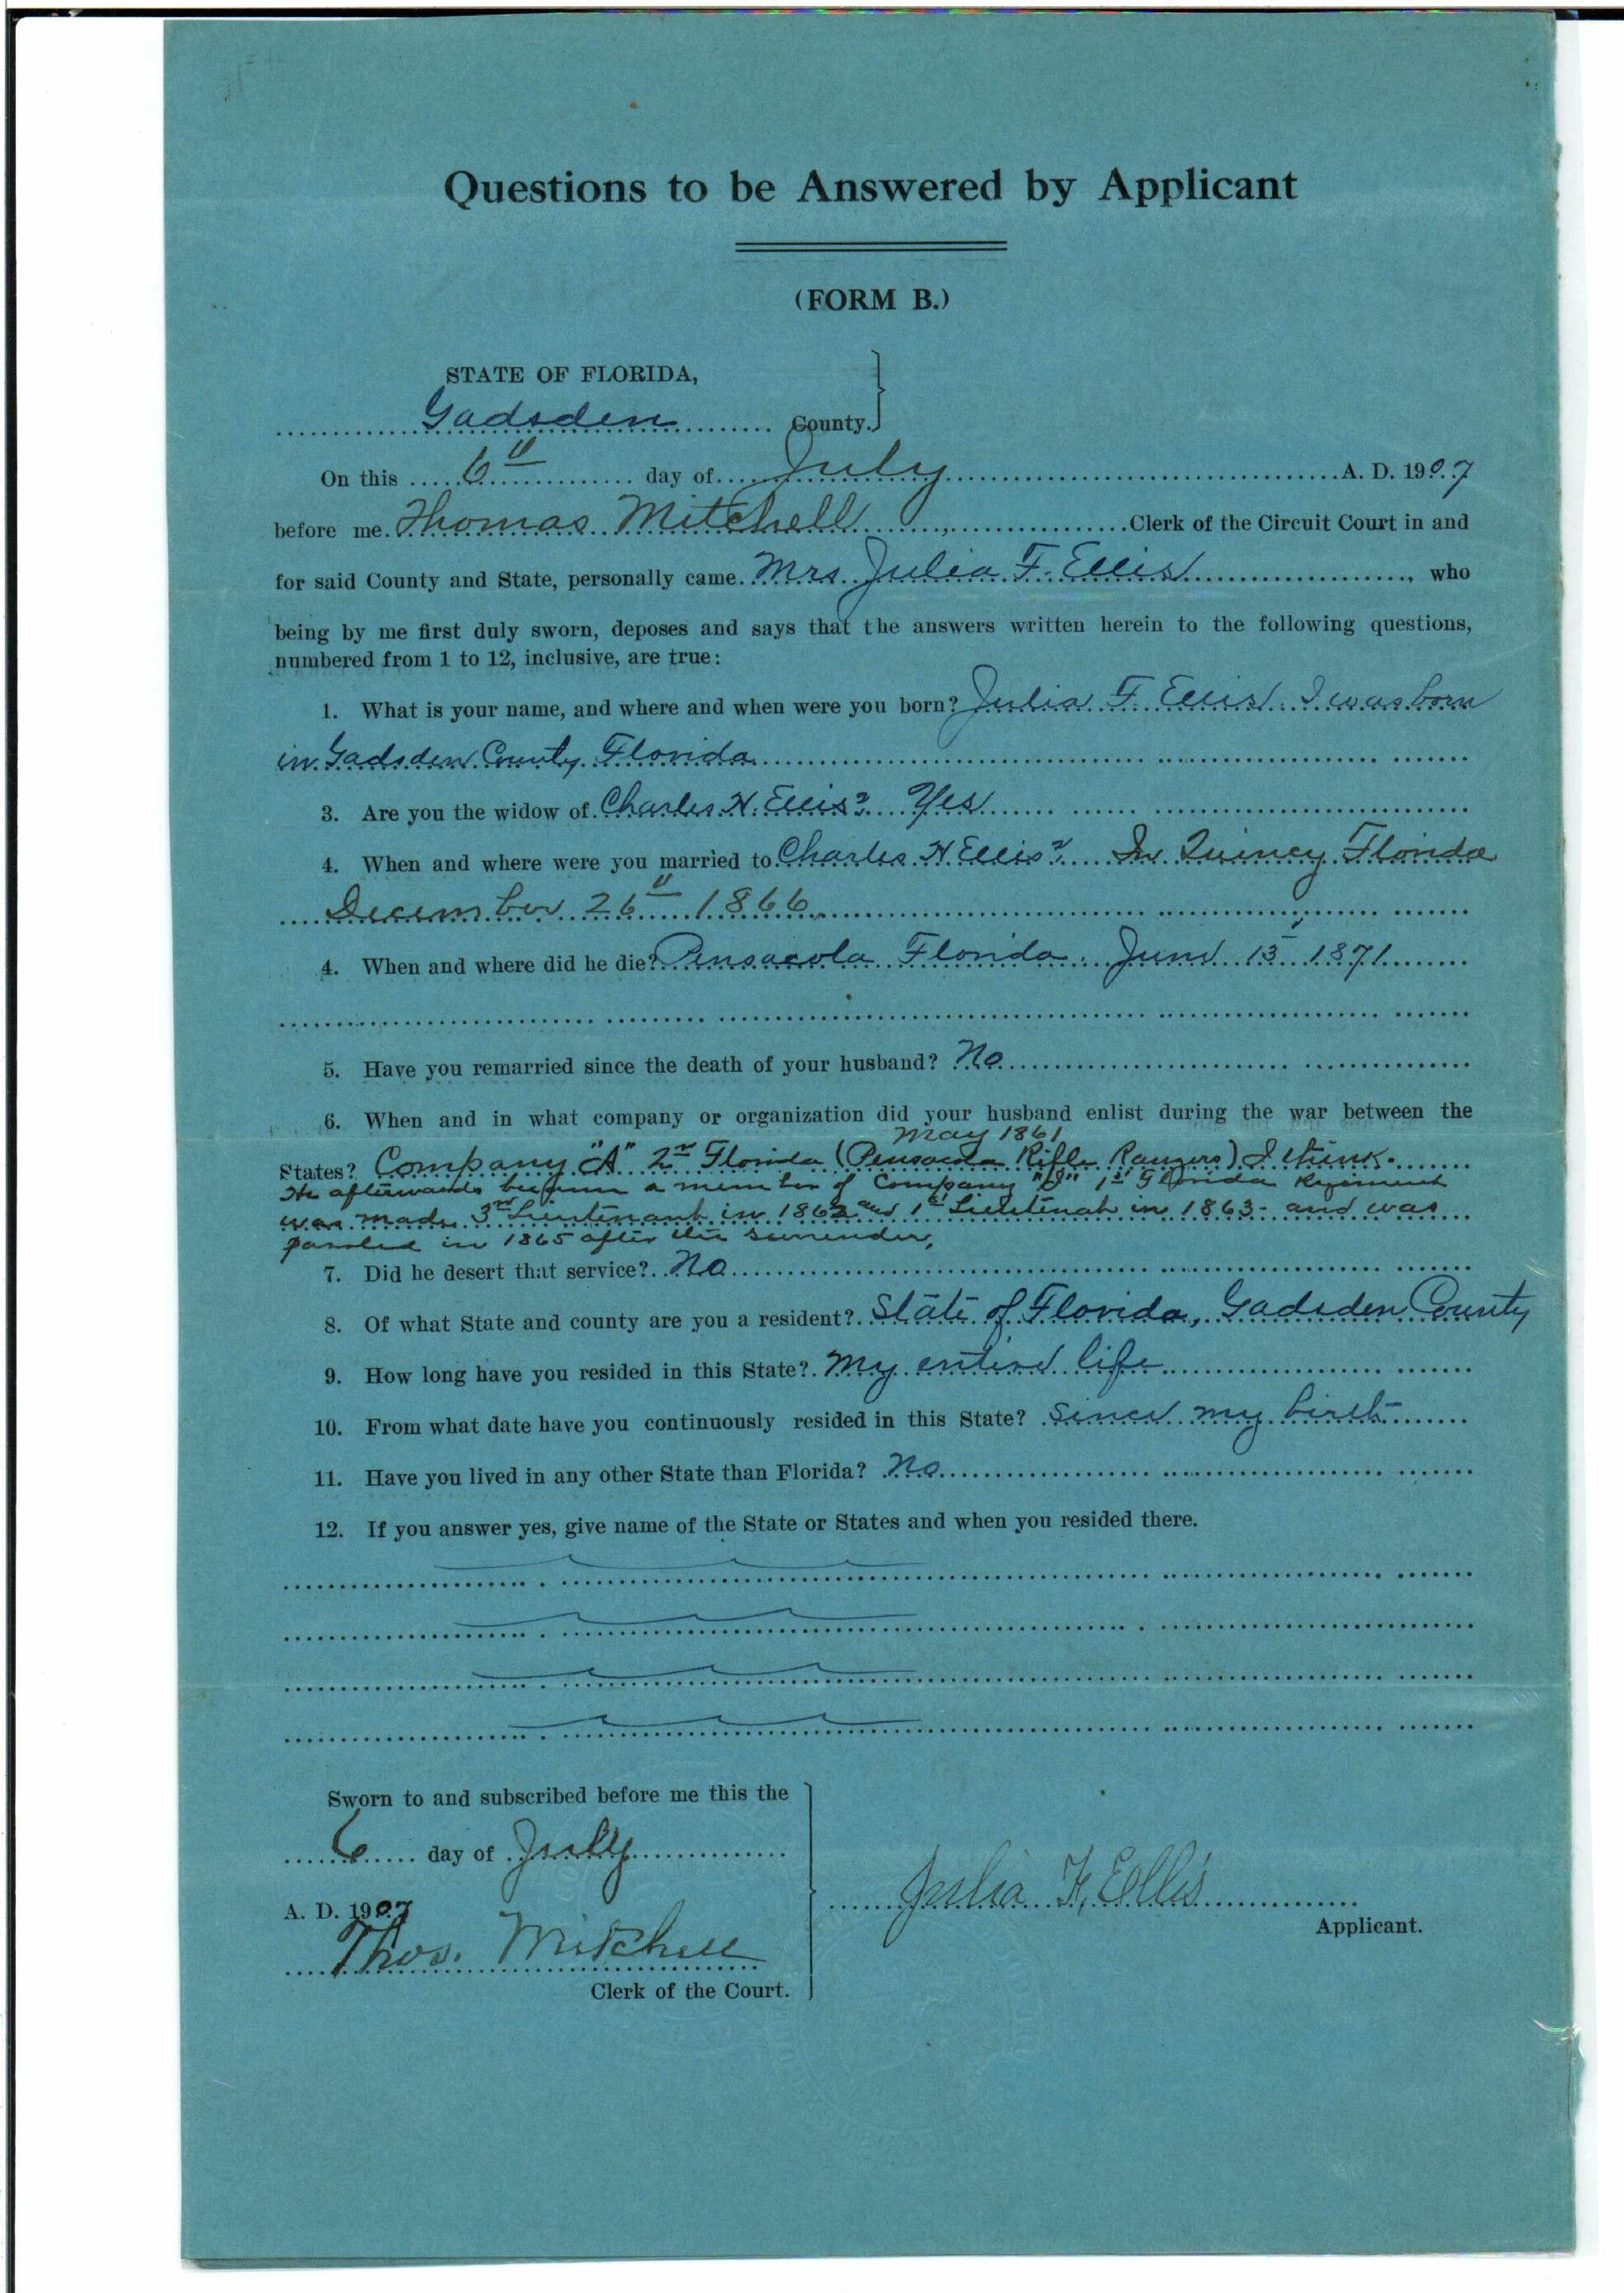 Questions to be Answered by Applicant
(FORM B.)
STATE OF FLORIDA,
Gadsden County.
On this 6" day of July A. D. 1907
before me Thomas Mitchell, Clerk of the Circuit Court in and
for said County and State, personally came Mrs Julia F. Ellis, who
being by me first duly sworn, deposes and says that the answers written herein to the following questions,
numbered from 1 to 12, inclusive, are true:
1. What is your name, and where and when were you born? Julia F Ellis. I was born
in Gadsden County Florida
3. Are you the widow of Charles H. Ellis? Yes
4. When and where were you married to Charles H Ellis? In Quincy Florida
December 26" 1866
4. When and where did he die? Pensacola Florida June 13 1871
5. Have you remarried since the death of your husband? No
6. When and in what company or organization did your husband enlist during the war between the
May 1861
States? Company "A" 2nd Florida (Pensacola Rifle Rangers) I think.
He afterwards became a member of Company 1st Florida Regiment
was made 3rd Lieutenant in 1862 and 1st Lieutenant in 1863 - and was
paroled in 1865 after the surrender,
7. Did he desert that service? No
8. Of what State and county are you a resident? State of Florida, Gadsden County
9. How long have you resided in this State? My entire life
10. From what date have you continuously resided in this State? Since my birth
11. Have you lived in any other State than Florida? No
12. If you answer yes, give name of the State or States and when you resided there.
Sworn to and subscribed before me this the
6 day of July
A. D. 1907
Thos. Mitchell
Clerk of the Court.
Julia F. Ellis
Applicant.